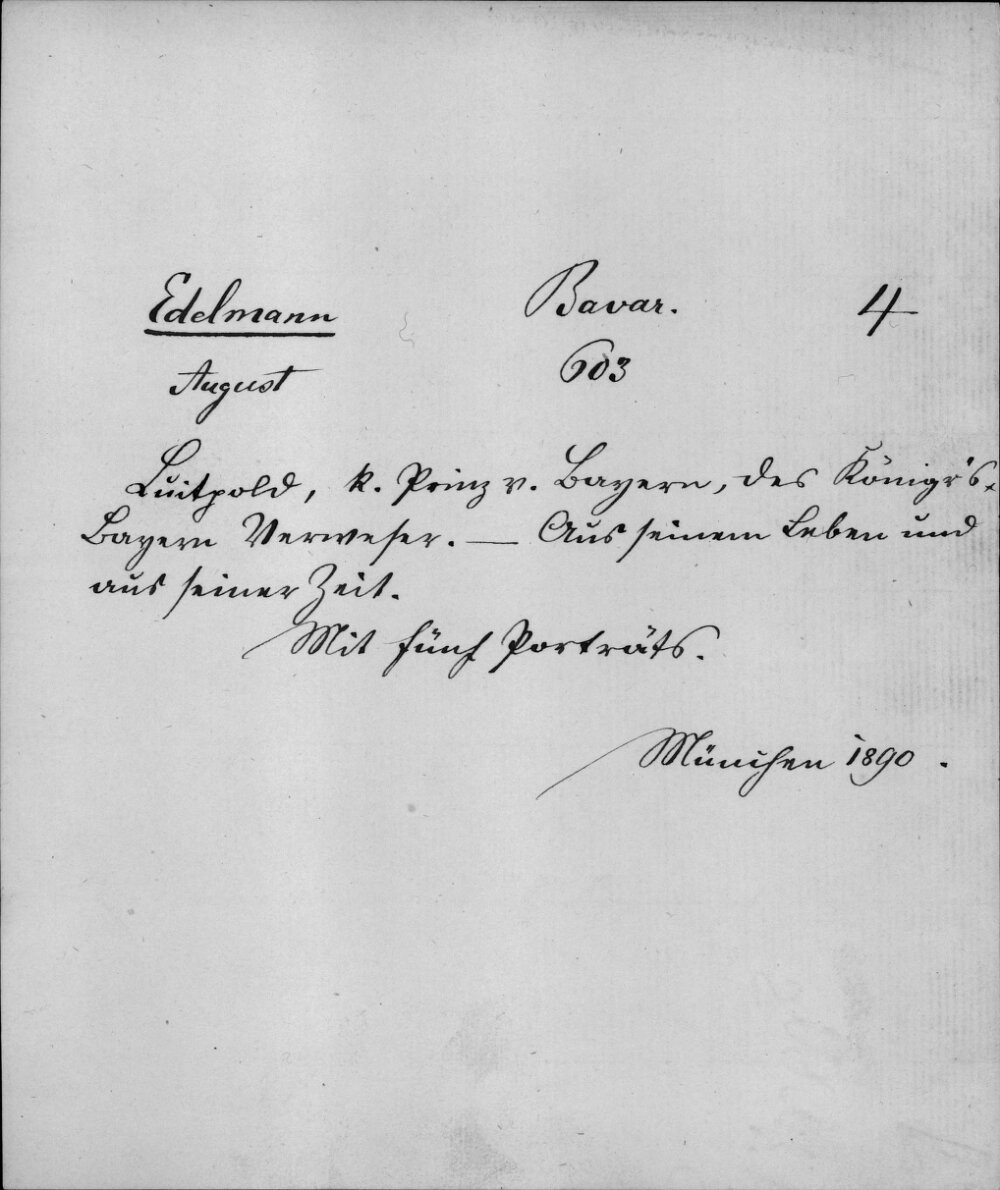 Edelmann Bavar. 4
August 603
Luitpold, k. Prinz v. Bayern, des Königr's.
Bayern Verweser. — Aus seinem Leben und
aus seiner Zeit.
Mit fünf Porträts.
München 1890.